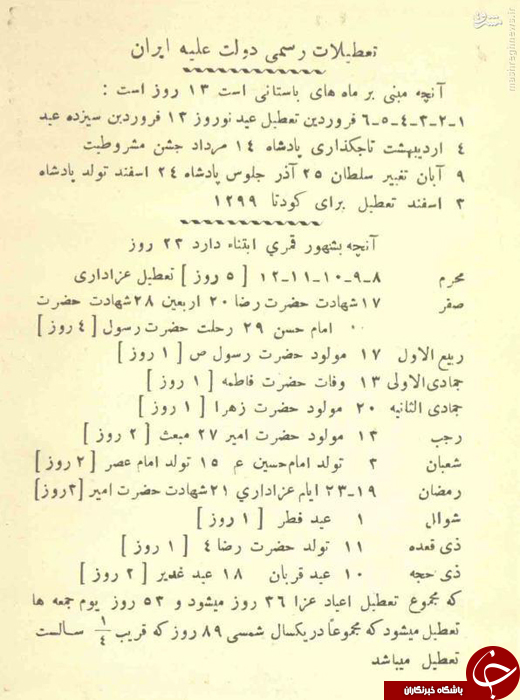 تعطیلات رسمی دولت علیه ایران
آنچه مبنی بر ماه های باستانی است ۱۳ روز است :
۱-۲-۳-۴-۵-۶ فروردین تعطیل عید نوروز ۱۳ فروردین سیزده عید
۴ اردیبهشت تاجگذاری پادشاه ۱۴ مرداد جشن مشروطیت
۹ آبان تغییر سلطان ۲۵ آذر جلوس پادشاه ۲۴ اسفند تولد پادشاه
۳ اسفند تعطیل برای کودتا ۱۲۹۹
آنچه بشهور قمری ابتناء دارد ۲۳ روز
محرم ۸-۹-۱۰-۱۱-۱۲ [ ۵ روز ] تعطیل عزاداری
صفر ۱۷ شهادت حضرت رضا ۲۰ اربعین ۲۸ شهادت حضرت
امام حسن ۲۹ رحلت حضرت رسول [ ۴ روز ]
ربیع الاول ۱۷ مولود حضرت رسول ص [ ۱ روز ]
جمادی الاولی ۱۳ وفات حضرت فاطمه [ ۱ روز ]
جمادی الثانیه ۲۰ مولود حضرت زهرا [ ۱ روز ]
رجب ۱۳ مولود حضرت امیر ۲۷ مبعث [ ۲ روز ]
شعبان ۳ تولد امام حسین ع ۱۵ تولد امام عصر [ ۲ روز ]
رمضان ۱۹-۲۳ ایام عزاداری ۲۱ شهادت حضرت امیر [۳ روز]
شوال ۱ عید فطر [ ۱ روز ]
ذی قعده ۱۱ تولد حضرت رضا ع [ ۱ روز ]
ذی حجه ۱۰ عید قربان ۱۸ عید غدیر [ ۲ روز ]
که مجموع تعطیل اعیاد عزا ۳۶ روز میشود و ۵۳ روز یوم جمعه ها
تعطیل میشود که مجموعاً در یکسال شمسی ۸۹ روز که قریب ۱/۴ سالست
تعطیل میباشد
مشرق
mashreghnews.ir
باشگاه خبرنگاران